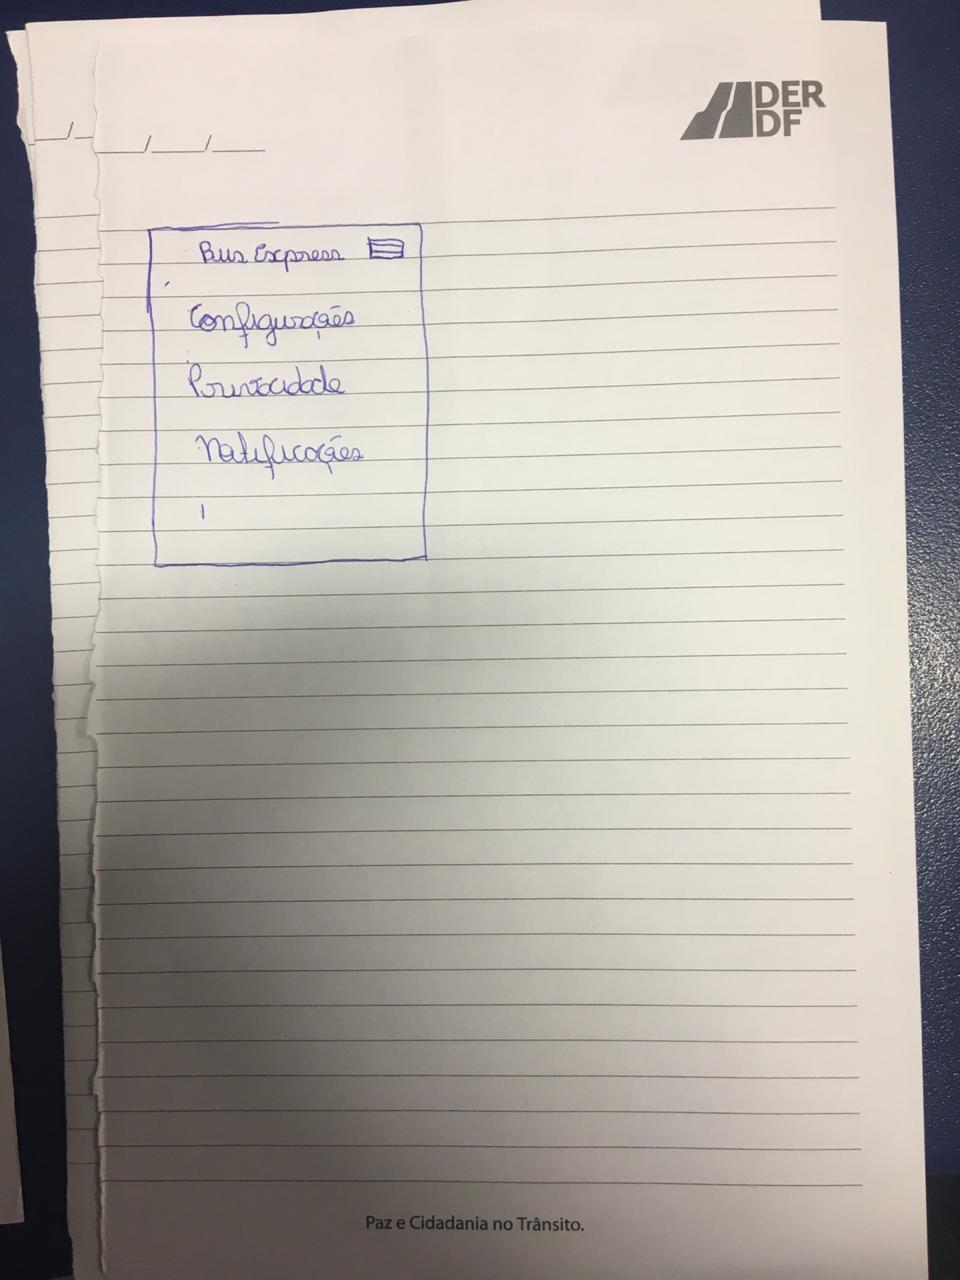 DER
DF
__/__
____/____/____
Bus Express
Configurações
Privacidade
Notificações
Paz e Cidadania no Trânsito.